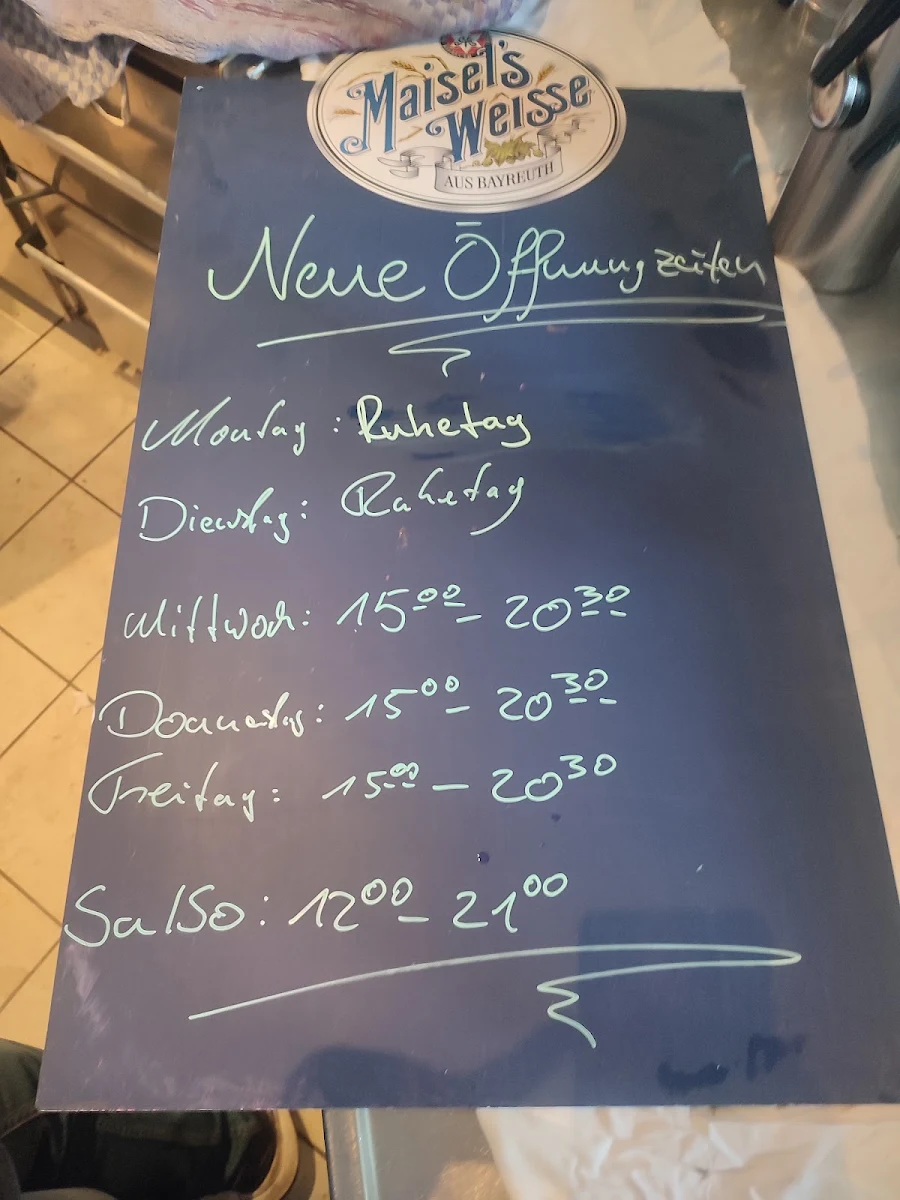 Maisel's
Weisse
AUS BAYREUTH
Neue Öffnungszeiten
Montag : Ruhetag
Dienstag: Ruhetag
Mittwoch: 15⁰⁰ - 20³⁰
Donnerstag: 15⁰⁰ - 20³⁰
Freitag: 15⁰⁰ - 20³⁰
Sa/So: 12⁰⁰ - 21⁰⁰